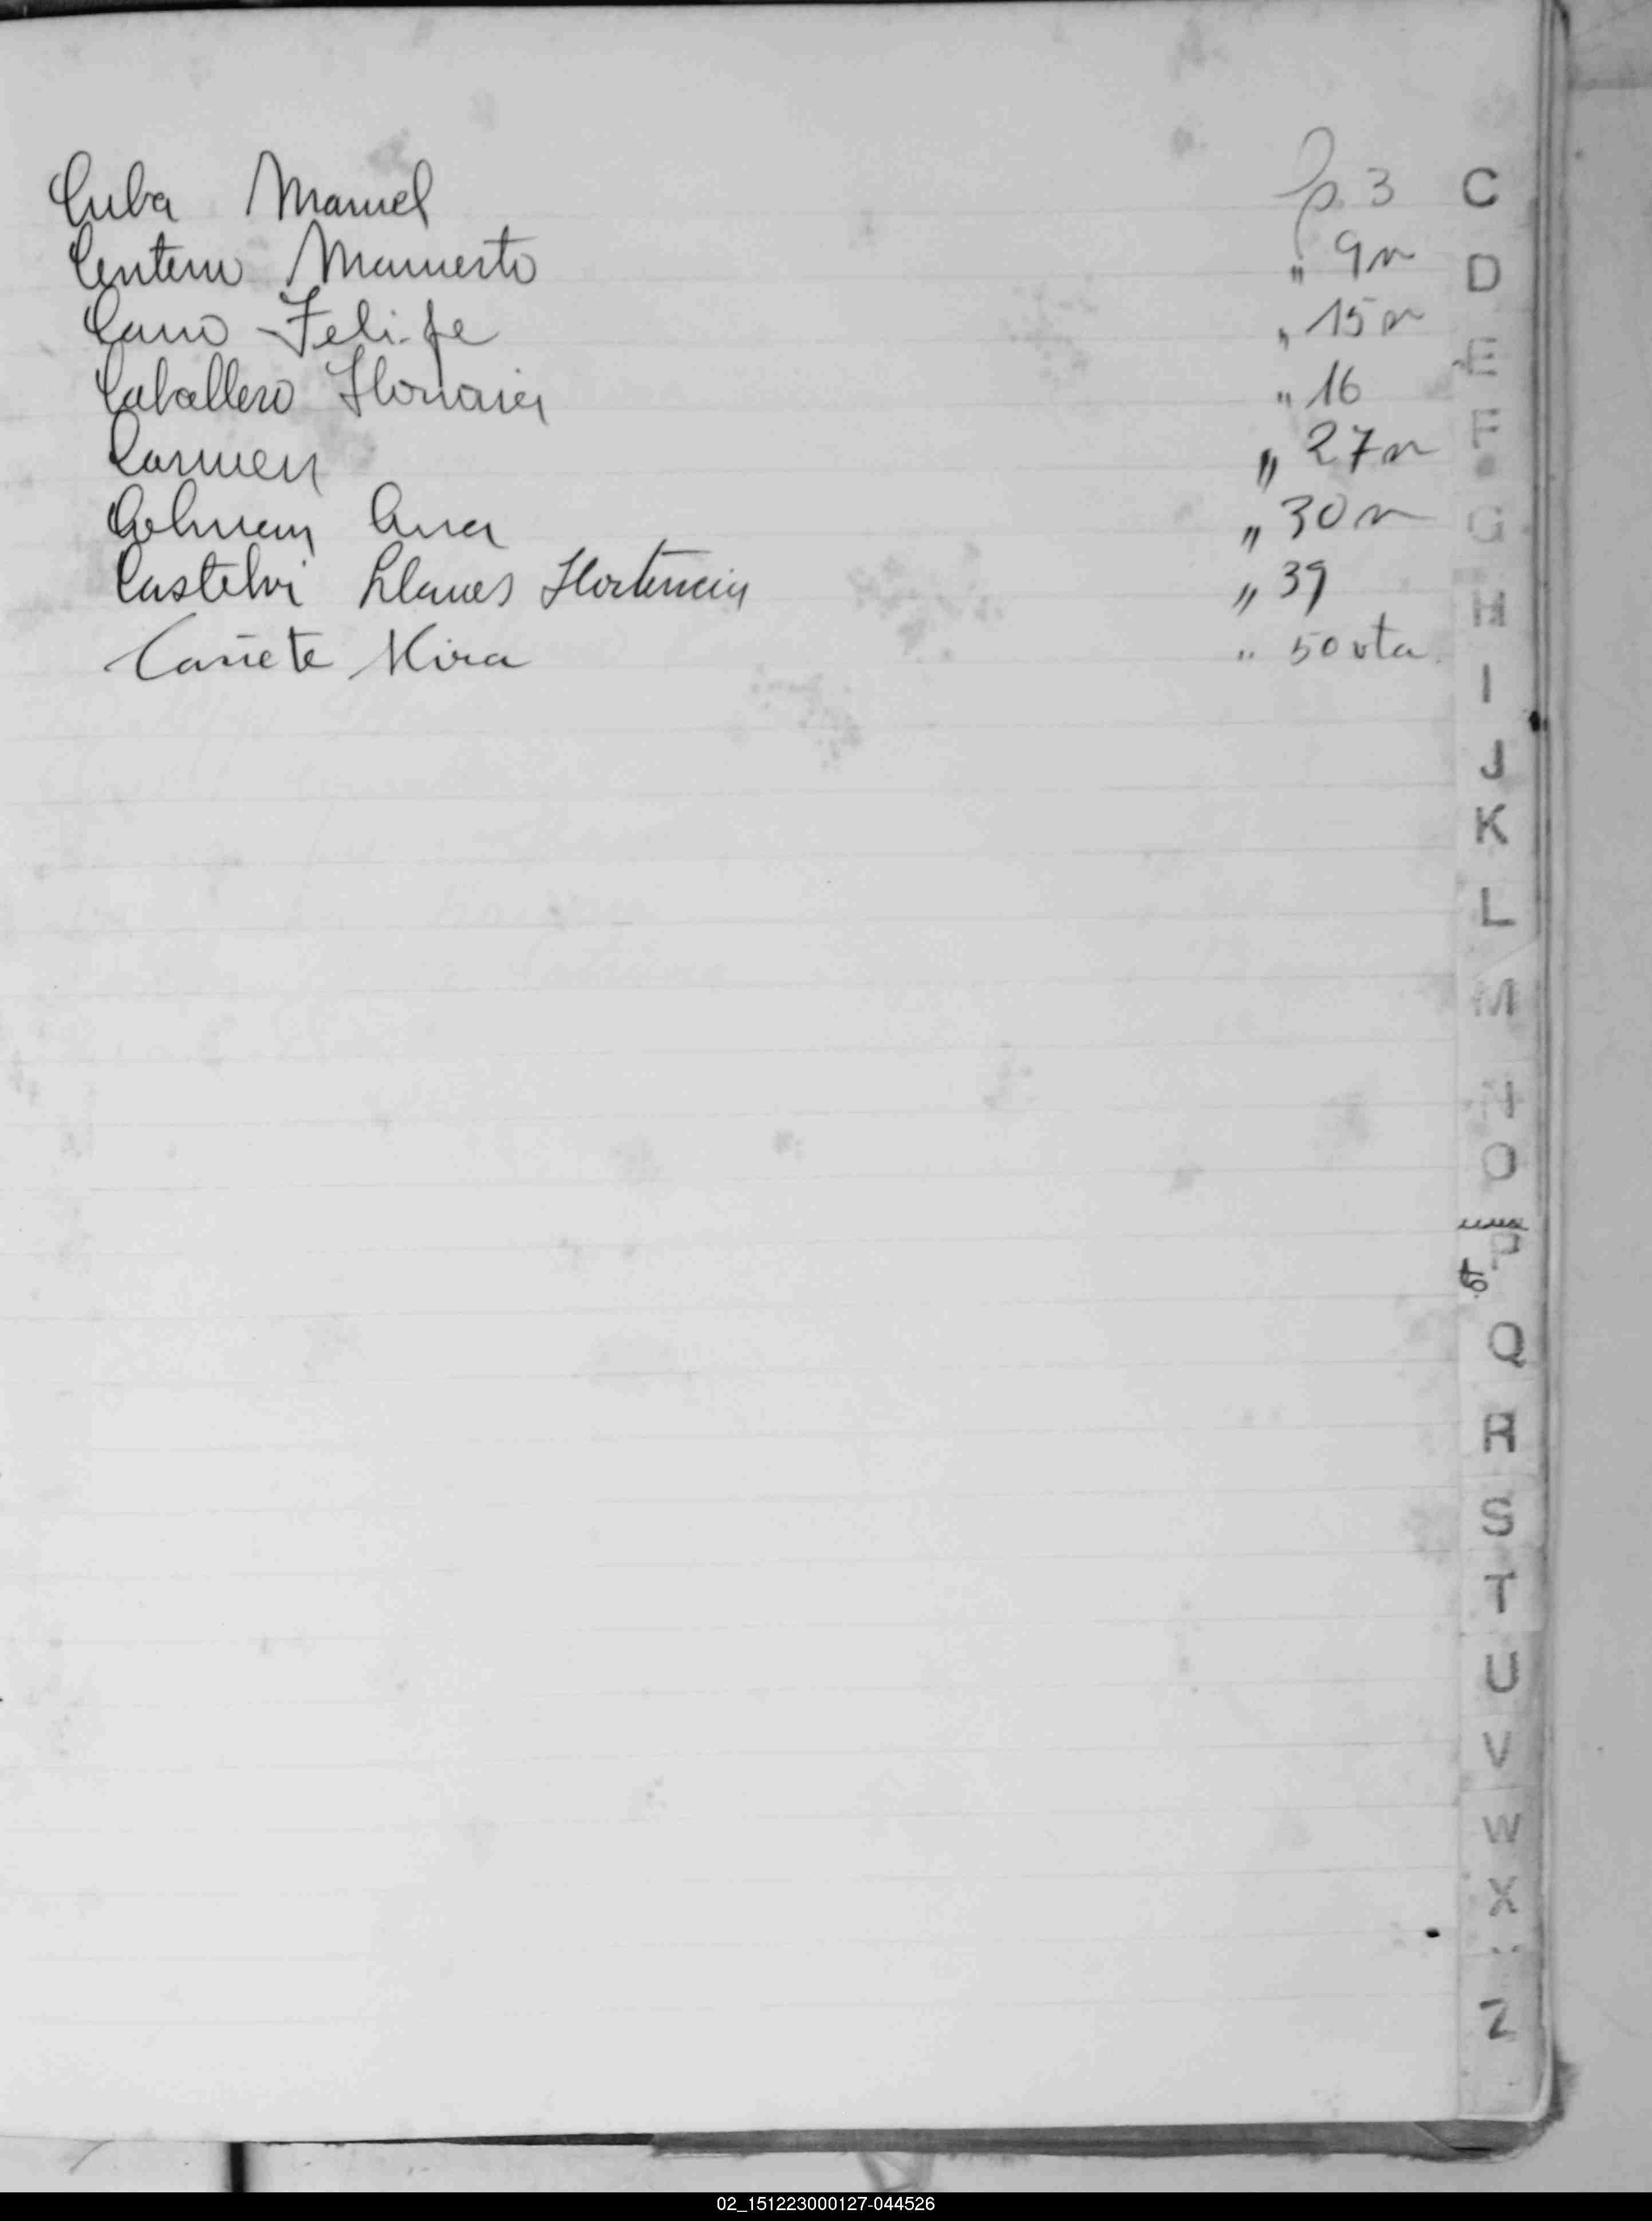 Cuba Manuel fo. 3
Centeno Mamerto " 9 v
Cano Felipe " 15 v
Caballero " 16
Carmen " 27 v
Ana " 30 v
Castelvi Llanes Hortencia " 39
Cañete Kira " 50 vta.
C
D
E
F
G
H
I
J
K
L
M
N
O
P
Q
R
S
T
U
V
W
X
Y
Z
02_151223000127-044526